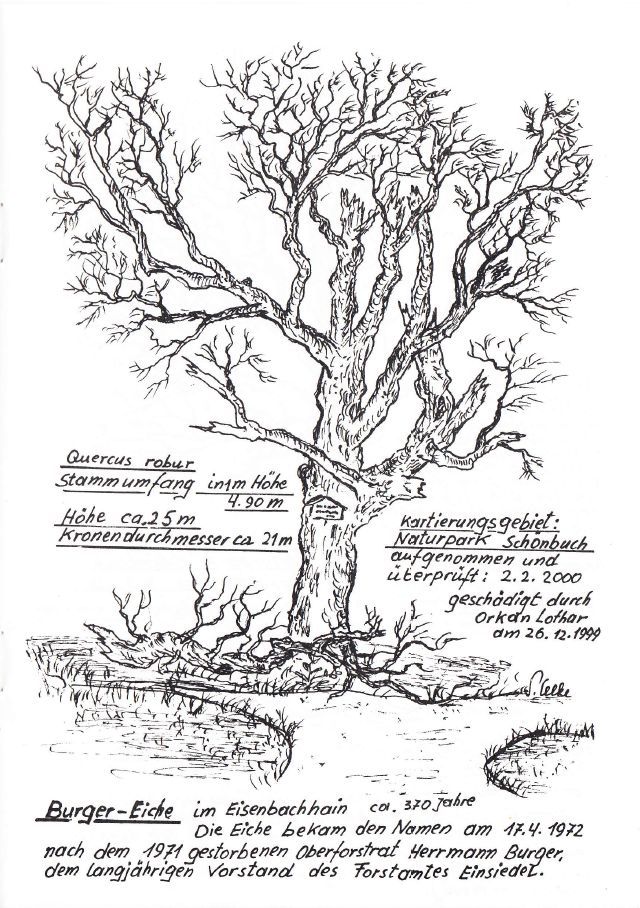 Quercus robur
Stammumfang in 1m Höhe
4.90 m
Höhe ca. 25 m
Kronendurchmesser ca 21 m
Kartierungsgebiet:
Naturpark Schönbuch
aufgenommen und
überprüft: 2.2. 2000
geschädigt durch
Orkan Lothar
am 26.12.1999
Burger-Eiche im Eisenbachhain ca. 370 Jahre
Die Eiche bekam den Namen am 17.4. 1972
nach dem 1971 gestorbenen Oberforstrat Herrmann Burger,
dem langjährigen Vorstand des Forstamtes Einsiedel.